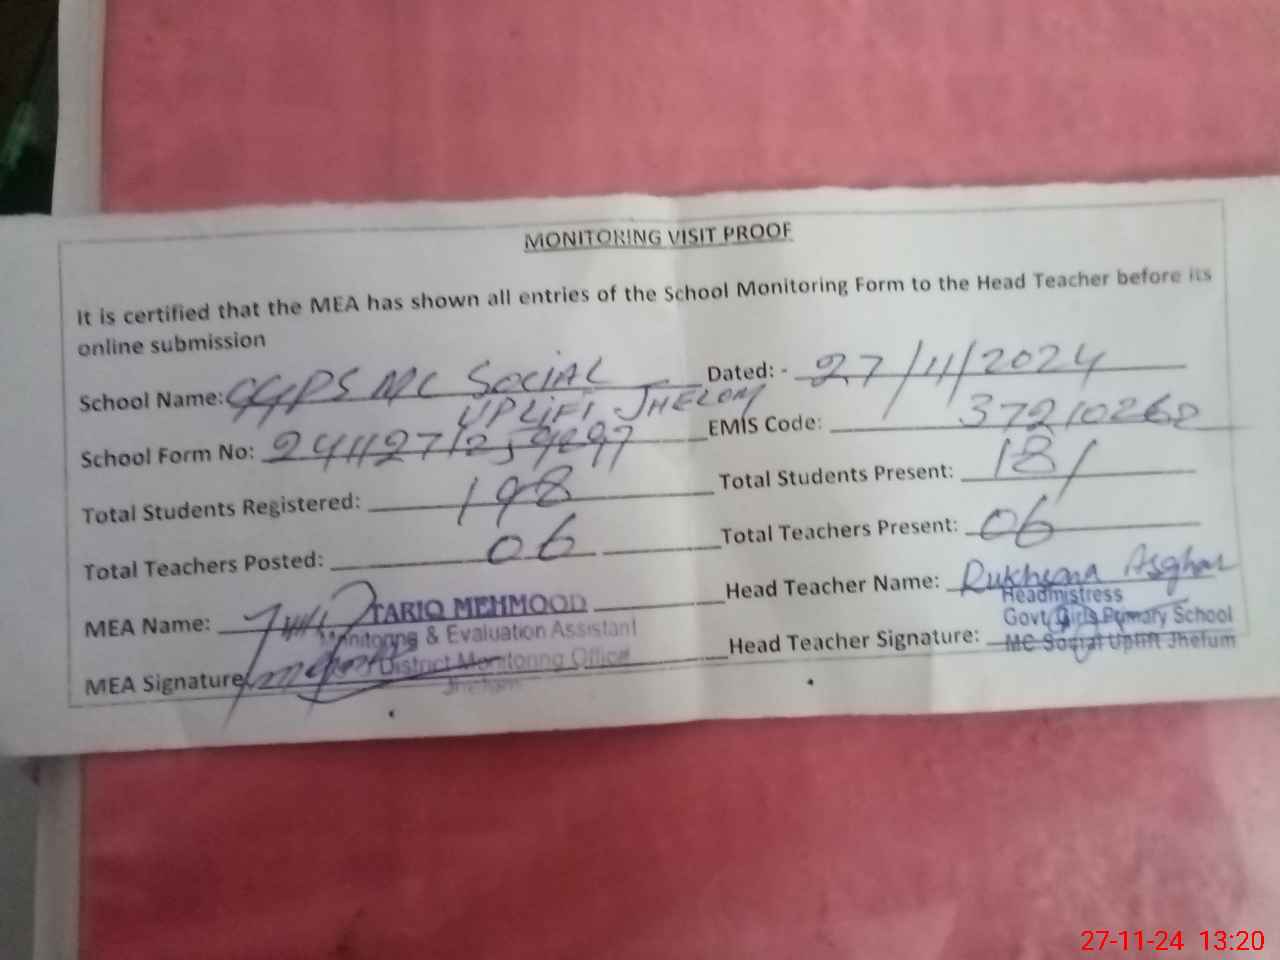 MONITORING VISIT PROOF
It is certified that the MEA has shown all entries of the School Monitoring Form to the Head Teacher before its
online submission
School Name: GGPS MC SOCIAL Dated: - 27/11/2024
UPLIFT JHELOM
School Form No: EMIS Code: 37210260
Total Students Registered: 198 Total Students Present: 181
Total Teachers Posted: 06 Total Teachers Present: 06
MEA Name: TARIQ MEHMOOD Head Teacher Name: Rukhsana Asghar
Monitoring & Evaluation Assistant Headmistress
District Monitoring Office Govt Girls Primary School
Jhelum MC Social Uplift Jhelum
MEA Signature Head Teacher Signature:
27-11-24 13:20